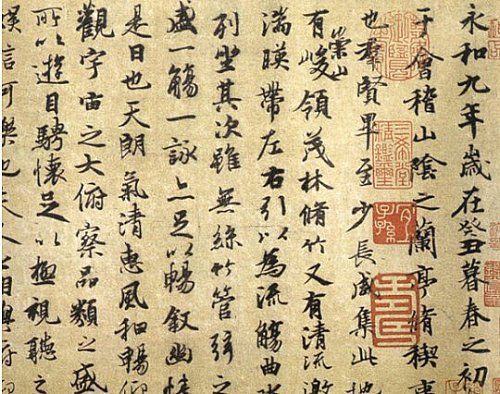 永和九年歲在癸丑暮春之初
于會稽山陰之蘭亭脩稧事
也羣賢畢至少長咸集此地
有崇山峻領茂林脩竹又有清流激
湍暎帶左右引以為流觴曲水
列坐其次雖無絲竹管弦之
盛一觴一詠亦足以暢叙幽情
是日也天朗氣清惠風和暢仰
觀宇宙之大俯察品類之盛
所以遊目騁懷足以極視聽之
娛信可樂也夫人之相與俯仰
三希堂精鑑璽
宜子孫